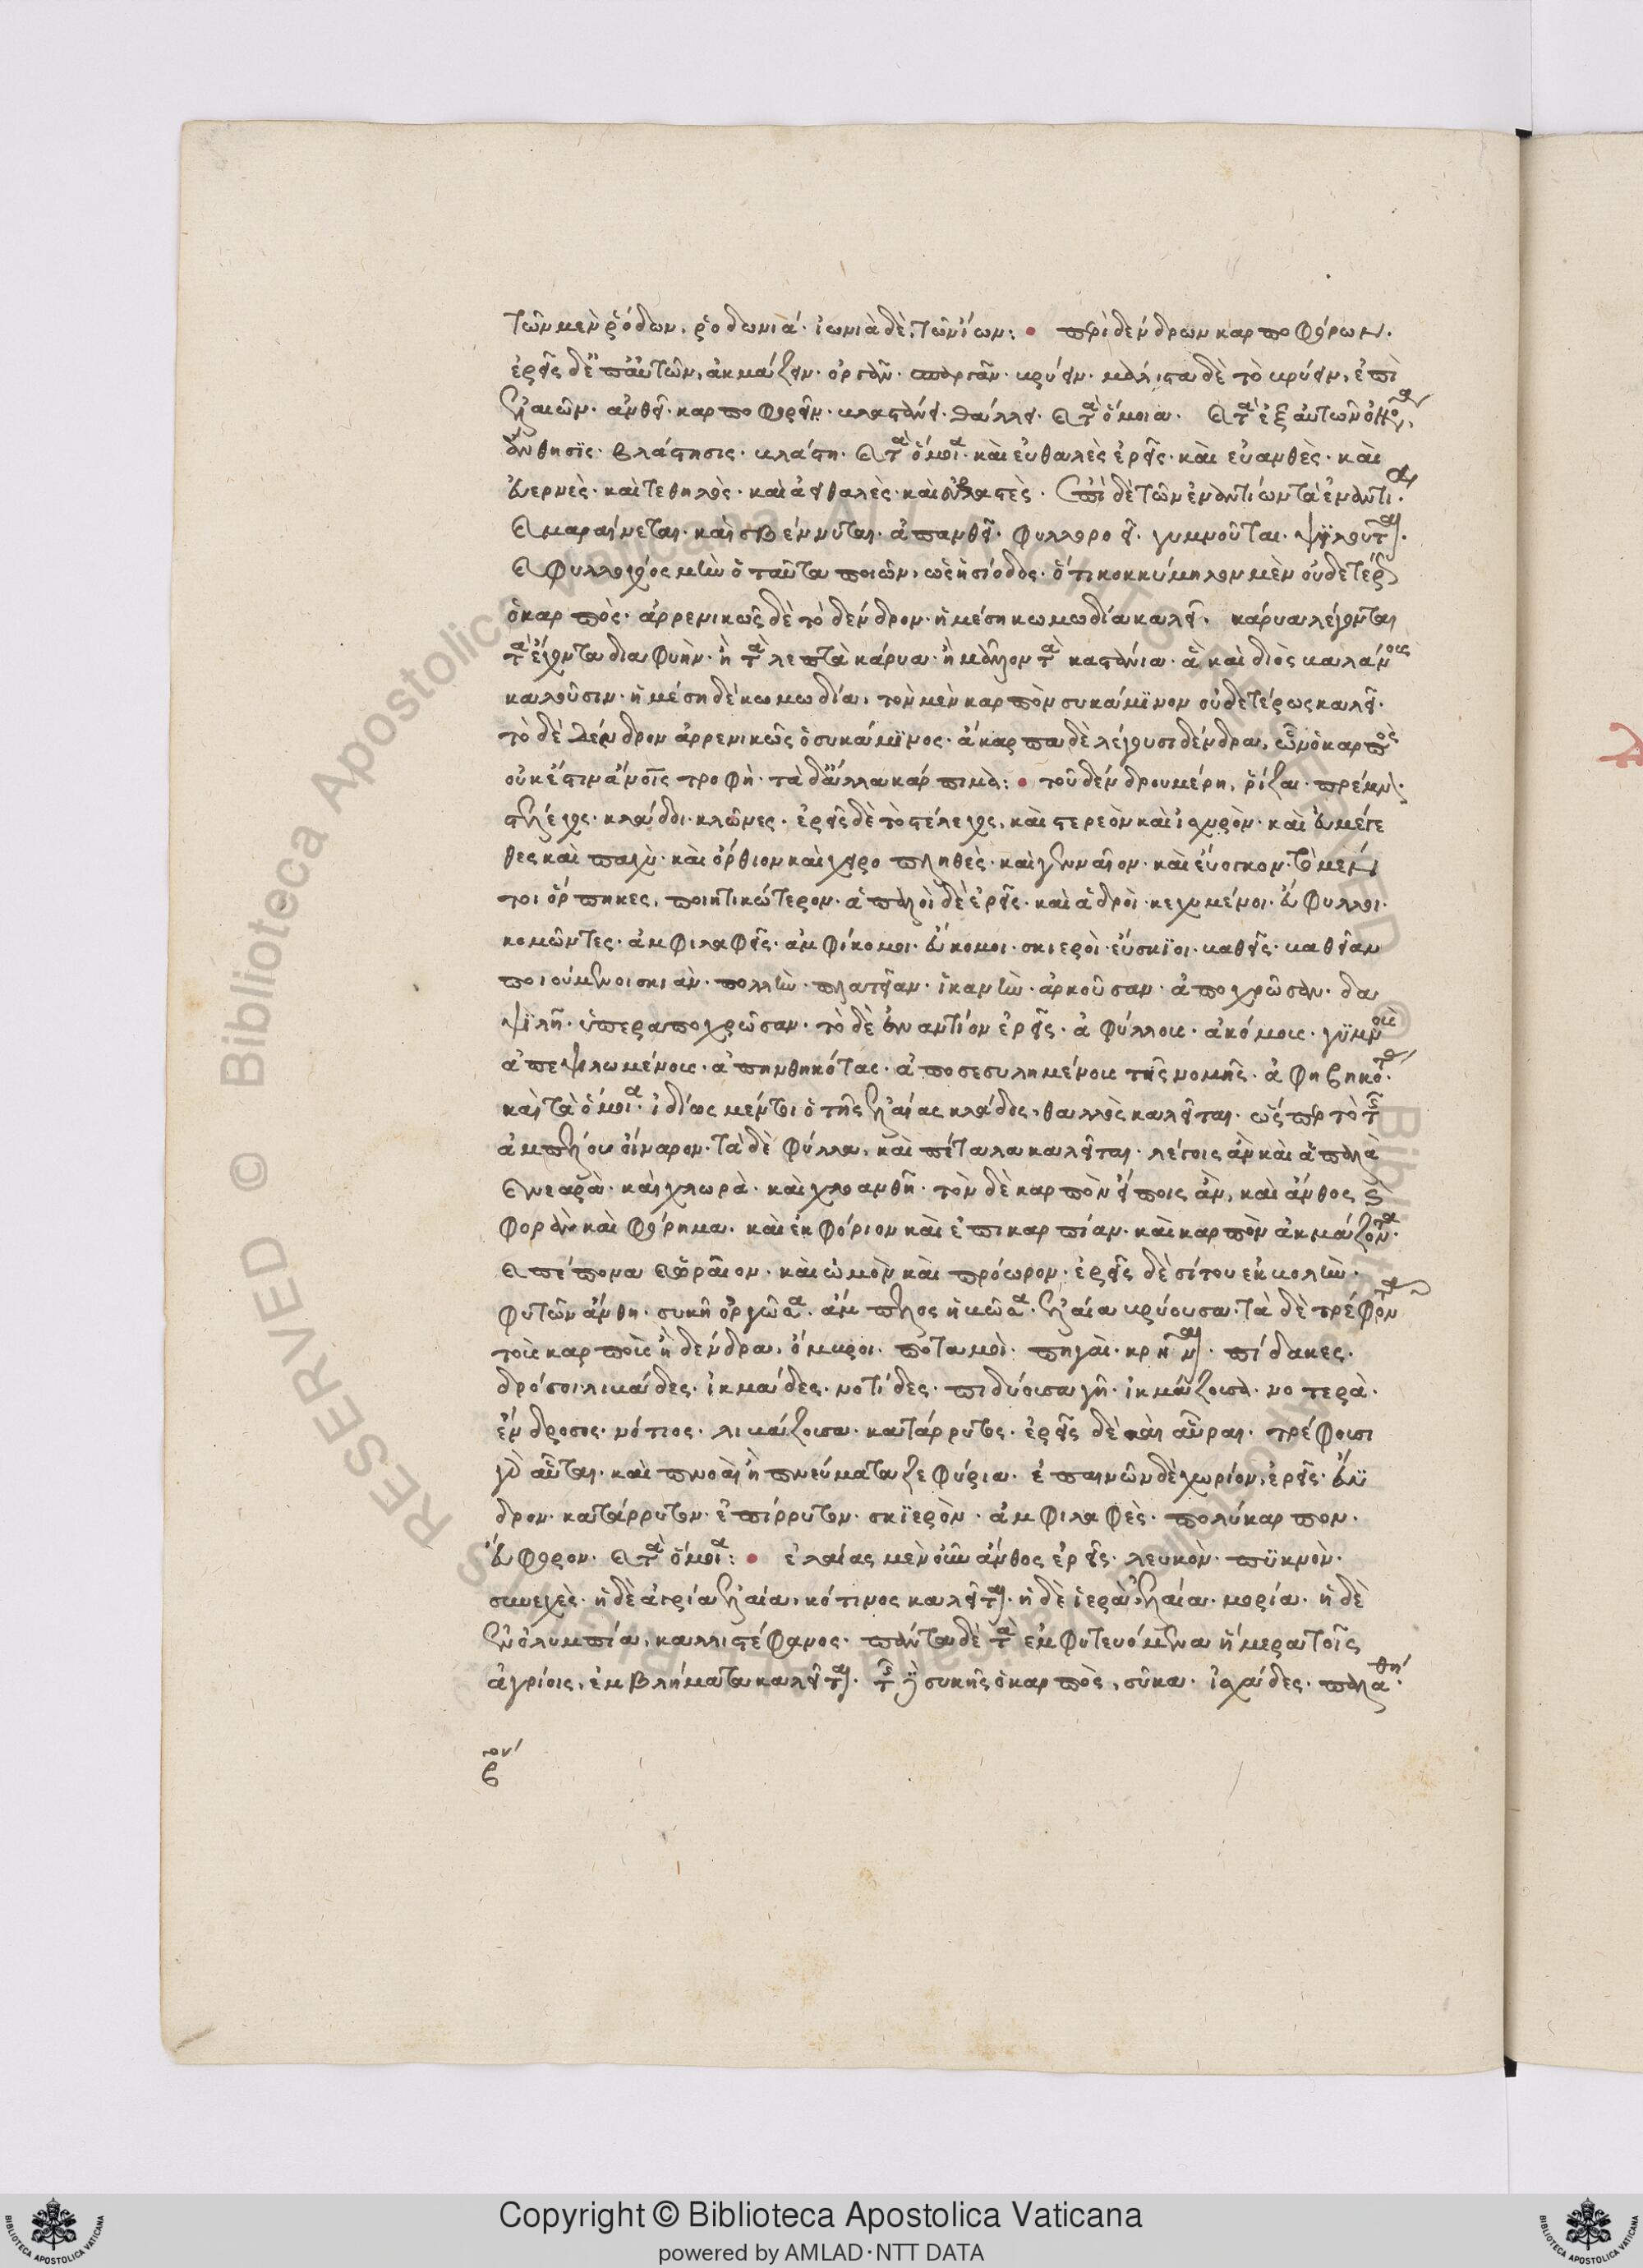 τῶν μὲν ῥόδων, ῥοδωνιά· ἰωνιὰ δὲ, τῶν ἴων: περὶ δένδρων καρποφόρων.
ἐρεῖς δὲ ἐπ' αὐτῶν, ἀκμάζειν· ὀργᾶν· σπαργᾶν· κρύειν· μάλιστα δὲ τὸ κρύειν, ἐπὶ
ἐλαιῶν· ἀνθεῖ· καρποφορεῖν· κλαστάνει· θάλλει· καὶ τὰ ὅμοια. καὶ τὰ ἐξ αὐτῶν ὀνόματα,
ἄνθησις· βλάστησις· κλάστη· καὶ τὰ ὅμοια· καὶ εὐθαλὲς ἐρεῖς· καὶ εὐανθὲς· καὶ
εὐερνὲς· καὶ τεθηλὸς· καὶ ἀειθαλὲς· καὶ εὐβλαστὲς. ἐπὶ δὲ τῶν ἐναντίων τὰ ἐναντία.
καὶ μαραίνεται· καὶ σβέννυται· ἀπανθεῖ· φυλλοροεῖ· γυμνοῦται· ψιλοῦται.
καὶ φυλλοχόος μὴν ὁ ταῦτα ποιῶν, ὡς ἡσίοδος. ὅτι κοκκύμηλον μὲν οὐδετέρως
ὁ καρπὸς· ἀρρενικῶς δὲ τὸ δένδρον· ἡ μέση κωμωδία καλεῖ. κάρυα λέγονται
τὰ ἔχοντα διαφυὴν· ἢ τὰ λεπτὰ κάρυα· ἢ μᾶλλον τὰ καστάνια· ἃ καὶ διὸς βαλάνους
καλοῦσιν· ἡ μέση δὲ κωμωδία, τὸν μὲν καρπὸν συκάμινον οὐδετέρως καλεῖ·
τὸ δὲ δένδρον ἀρρενικῶς ὁ συκάμινος· ἄκαρπα δὲ λέγουσι δένδρα, ὧν ὁ καρπὸς
οὐκ ἔστιν ἀνοις τροφὴ· τὰ δ' ἄλλα κάρπιμα: τοῦ δένδρου μέρη, ῥίζαι· πρέμνα·
στέλεχος· κλάδοι· κλῶνες· ἐρεῖς δὲ τὸ στέλεχος, καὶ στερεὸν καὶ ἰσχυρὸν· καὶ εὐμέγε
θες καὶ παχὺ· καὶ ὄρθιον καὶ χειροπληθὲς· καὶ γενναῖον· καὶ εὔοικον· τὸ μέν
τοι ὄρπηκες, ποιητικώτερον· ἁπαλοὶ δὲ ἐρεῖς· καὶ ἁδροὶ· κεχυμένοι· εὔφυλλοι·
κομῶντες· ἀμφιλαφεῖς· ἀμφίκομοι· εὔκομοι· σκιεροὶ· εὔσκιοι· βαθεῖς· βαθεῖαν
ποιούμενοι σκιὰν· πολλὴν· πλατεῖαν· ἱκανὴν· ἀρκοῦσαν· ἀποχρῶσαν· δα
ψιλῆ· ὑπεραποχρῶσαν· τὸ δὲ ἐναντίον ἐρεῖς· ἀφύλλους· ἀκόμους· γυμνοὺς
ἀπεψιλωμένους· ἀπηνθηκότας· ἀποσεσυλημένους τῆς νομῆς· ἀφηβηκότας·
καὶ τὰ ὅμοια· ἰδίως μέντοι ὁ τῆς ἐλαίας κλάδος, θαλλὸς καλεῖται· ὥσπερ τὸ τῆς
ἀμπέλου οἴναρον· τὰ δὲ φύλλα, καὶ πέταλα καλεῖται· λέγοις ἂν καὶ ἁπαλὰ
καὶ νεαρὰ· καὶ χλωρὰ· καὶ χλοανθῆ· τὸν δὲ καρπὸν εἴποις ἂν, καὶ ἄνθος καὶ
φορὰν καὶ φόρημα· καὶ ἐκφόριον καὶ ἐπικαρπίαν· καὶ καρπὸν ἀκμάζοντα·
καὶ πέπονα καὶ ὡραῖον· καὶ ὠμὸν καὶ πρόωρον· ἐρεῖς δὲ σίτου ἐκβολὴν·
φυτῶν ἄνθη· συκῆ ὀργῶσα· ἄμπελος ἡβῶσα· ἐλαία κρύουσα· τὰ δὲ τρέφοντα
τοὺς καρποὺς ἢ δένδρα, ὄμβροι· ποταμοὶ· πηγαὶ· κρῆναι· πίδακες·
δρόσοι· λιβάδες· ἰκμάδες· νοτίδες· πιδύουσα γῆ· ἰκμάζουσα· νοτερὰ·
ἔνδροσος· νότιος· λιβάζουσα· κατάρρυτος· ἐρεῖς δὲ καὶ αὖραι· τρέφουσι
γὰρ αὗται· καὶ πνοαὶ ἢ πνεύματα ζεφύρια· ἐπαινῶν δὲ χωρίον, ἐρεῖς· εὔυ
δρον· κατάρρυτον· ἐπίρρυτον· σκιερὸν· ἀμφιλαφὲς· πολύκαρπον·
εὔφορον· καὶ τὰ ὅμοια: ἐλαίας μὲν οὖν ἄνθος ἐρεῖς· λευκὸν· πυκνὸν·
συνεχὲς· ἡ δὲ ἀγρία ἐλαία, κότινος καλεῖται· ἡ δὲ ἱερὰ ἐλαία· μορία· ἡ δὲ
ἐν ὀλυμπία, καλλιστέφανος· πάντα δὲ τὰ ἐμφυτευόμενα ἥμερα τοῖς
ἀγρίοις, ἐμβλήματα καλεῖται· τῆς δὲ συκῆς ὁ καρπὸς, σῦκα· ἰσχάδες· παλάθη·
Copyright © Biblioteca Apostolica Vaticana
powered by AMLAD·NTT DATA